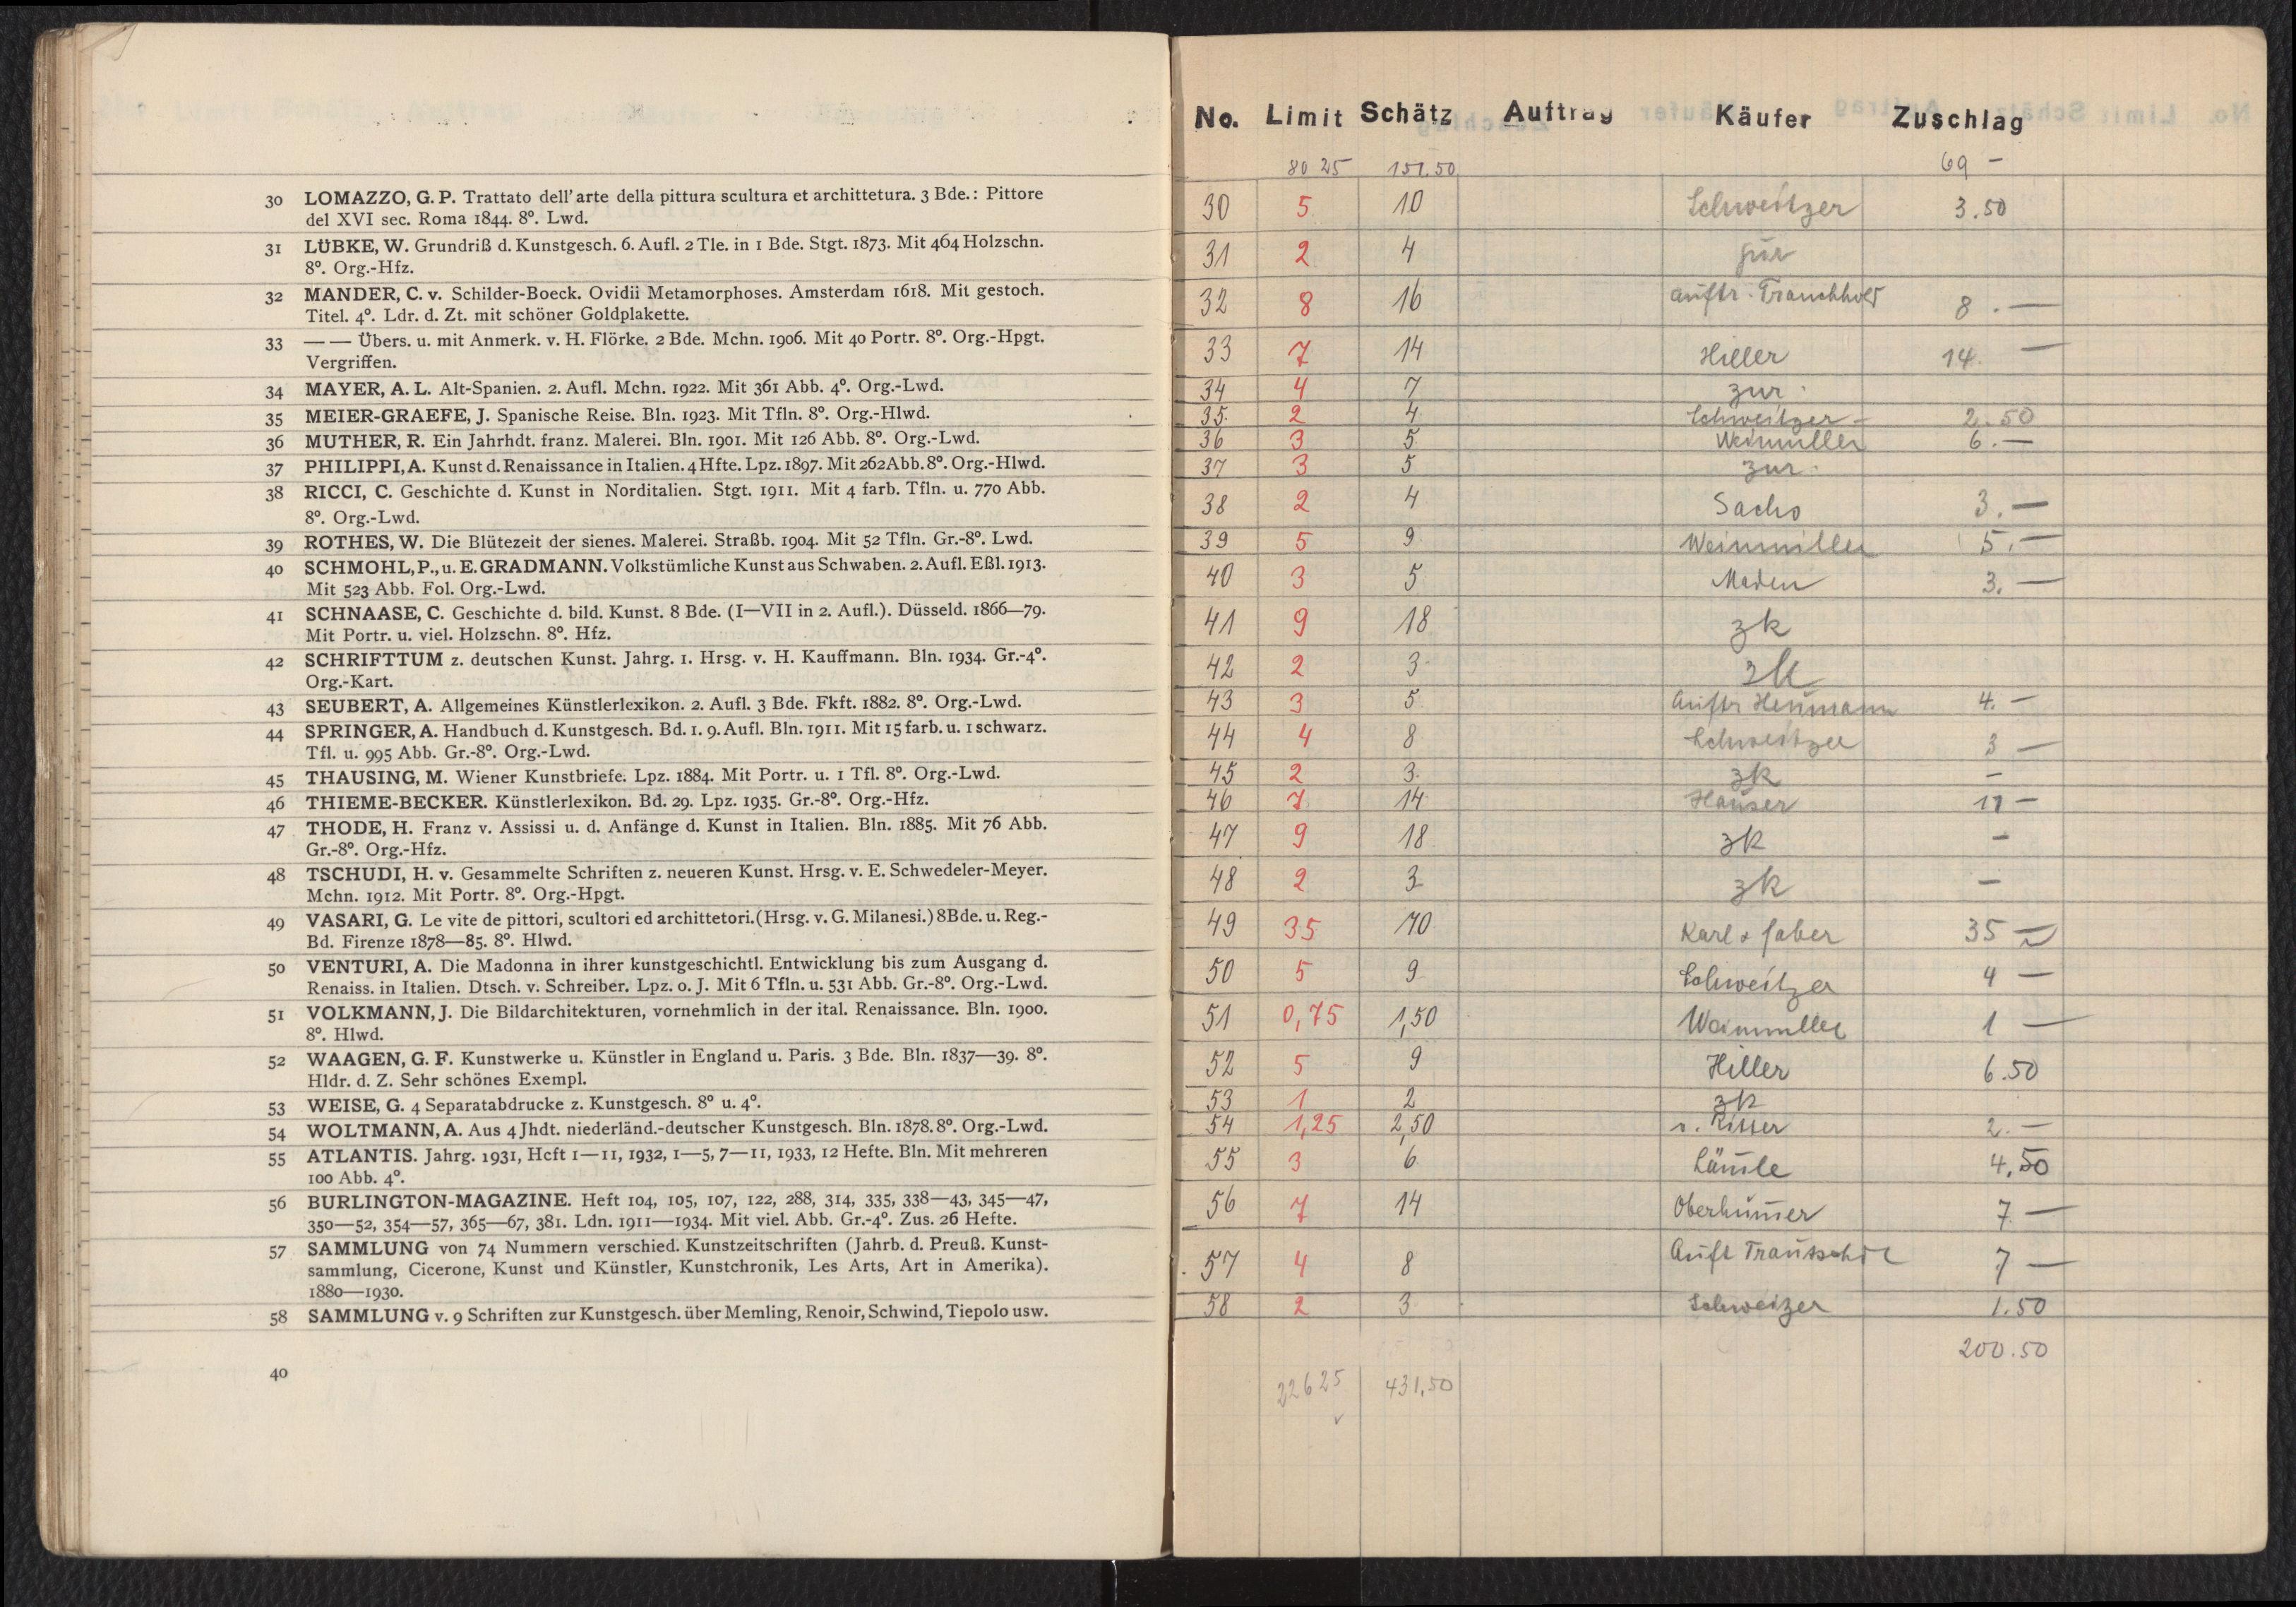 30 LOMAZZO, G. P. Trattato dell'arte della pittura scultura et archittetura. 3 Bde.: Pittore
del XVI sec. Roma 1844. 8º. Lwd.
31 LÜBKE, W. Grundriß d. Kunstgesch. 6. Aufl. 2 Tle. in 1 Bde. Stgt. 1873. Mit 464 Holzschn.
8º. Org.-Hfz.
32 MANDER, C. v. Schilder-Boeck. Ovidii Metamorphoses. Amsterdam 1618. Mit gestoch.
Titel. 4º. Ldr. d. Zt. mit schöner Goldplakette.
33 — — Übers. u. mit Anmerk. v. H. Flörke. 2 Bde. Mchn. 1906. Mit 40 Portr. 8º. Org.-Hpgt.
Vergriffen.
34 MAYER, A. L. Alt-Spanien. 2. Aufl. Mchn. 1922. Mit 361 Abb. 4º. Org.-Lwd.
35 MEIER-GRAEFE, J. Spanische Reise. Bln. 1923. Mit Tfln. 8º. Org.-Hlwd.
36 MUTHER, R. Ein Jahrhdt. franz. Malerei. Bln. 1901. Mit 126 Abb. 8º. Org.-Lwd.
37 PHILIPPI, A. Kunst d. Renaissance in Italien. 4 Hfte. Lpz. 1897. Mit 262 Abb. 8º. Org.-Hlwd.
38 RICCI, C. Geschichte d. Kunst in Norditalien. Stgt. 1911. Mit 4 farb. Tfln. u. 770 Abb.
8º. Org.-Lwd.
39 ROTHES, W. Die Blütezeit der sienes. Malerei. Straßb. 1904. Mit 52 Tfln. Gr.-8º. Lwd.
40 SCHMOHL, P., u. E. GRADMANN. Volkstümliche Kunst aus Schwaben. 2. Aufl. Eßl. 1913.
Mit 523 Abb. Fol. Org.-Lwd.
41 SCHNAASE, C. Geschichte d. bild. Kunst. 8 Bde. (I—VII in 2. Aufl.). Düsseld. 1866—79.
Mit Portr. u. viel. Holzschn. 8º. Hfz.
42 SCHRIFTTUM z. deutschen Kunst. Jahrg. 1. Hrsg. v. H. Kauffmann. Bln. 1934. Gr.-4º.
Org.-Kart.
43 SEUBERT, A. Allgemeines Künstlerlexikon. 2. Aufl. 3 Bde. Fkft. 1882. 8º. Org.-Lwd.
44 SPRINGER, A. Handbuch d. Kunstgesch. Bd. 1. 9. Aufl. Bln. 1911. Mit 15 farb. u. 1 schwarz.
Tfl. u. 995 Abb. Gr.-8º. Org.-Lwd.
45 THAUSING, M. Wiener Kunstbriefe. Lpz. 1884. Mit Portr. u. 1 Tfl. 8º. Org.-Lwd.
46 THIEME-BECKER. Künstlerlexikon. Bd. 29. Lpz. 1935. Gr.-8º. Org.-Hfz.
47 THODE, H. Franz v. Assissi u. d. Anfänge d. Kunst in Italien. Bln. 1885. Mit 76 Abb.
Gr.-8º. Org.-Hfz.
48 TSCHUDI, H. v. Gesammelte Schriften z. neueren Kunst. Hrsg. v. E. Schwedeler-Meyer.
Mchn. 1912. Mit Portr. 8º. Org.-Hpgt.
49 VASARI, G. Le vite de pittori, scultori ed archittetori. (Hrsg. v. G. Milanesi.) 8 Bde. u. Reg.-
Bd. Firenze 1878—85. 8º. Hlwd.
50 VENTURI, A. Die Madonna in ihrer kunstgeschichtl. Entwicklung bis zum Ausgang d.
Renaiss. in Italien. Dtsch. v. Schreiber. Lpz. o. J. Mit 6 Tfln. u. 531 Abb. Gr.-8º. Org.-Lwd.
51 VOLKMANN, J. Die Bildarchitekturen, vornehmlich in der ital. Renaissance. Bln. 1900.
8º. Hlwd.
52 WAAGEN, G. F. Kunstwerke u. Künstler in England u. Paris. 3 Bde. Bln. 1837—39. 8º.
Hldr. d. Z. Sehr schönes Exempl.
53 WEISE, G. 4 Separatabdrucke z. Kunstgesch. 8º u. 4º.
54 WOLTMANN, A. Aus 4 Jhdt. niederländ.-deutscher Kunstgesch. Bln. 1878. 8º. Org.-Lwd.
55 ATLANTIS. Jahrg. 1931, Heft 1—11, 1932, 1—5, 7—11, 1933, 12 Hefte. Bln. Mit mehreren
100 Abb. 4º.
56 BURLINGTON-MAGAZINE. Heft 104, 105, 107, 122, 288, 314, 335, 338—43, 345—47,
350—52, 354—57, 365—67, 381. Ldn. 1911—1934. Mit viel. Abb. Gr.-4º. Zus. 26 Hefte.
57 SAMMLUNG von 74 Nummern verschied. Kunstzeitschriften (Jahrb. d. Preuß. Kunst-
sammlung, Cicerone, Kunst und Künstler, Kunstchronik, Les Arts, Art in Amerika).
1880—1930.
58 SAMMLUNG v. 9 Schriften zur Kunstgesch. über Memling, Renoir, Schwind, Tiepolo usw.
40
No. Limit Schätz Auftrag Käufer Zuschlag
80 25 151.50 69 —
30 5 10 Schweitzer 3.50
31 2 4 zur
32 8 16 Auftr. 8.—
33 7 14 Hiller 14.—
34 4 7 zur.
35. 2 4. Schweitzer — 2.50
36 3 5. Weinmüller 6.—
37 3 5 zur.
38 2 4 Sachs 3.—
39 5 9 Weinmüller 5.—
40 3 5 3.—
41 9 18 zk
42 2 3 zk
43 3 5 Auftr 4.—
44 4 8 Schweitzer 3 —
45 2 3. zk —
46 7 14 Hauser 11 —
47 9 18 zk —
48 2 3 zk —
49 35 70 Karl & Faber 35 —
50 5 9 Schweitzer 4 —
51 0,75 1,50 Weinmüller 1 —
52 5 9 Hiller 6.50
53 1 2 zk
54 1,25 2,50 2.—
55 3 6 Läule 4,50
56 7 14 Oberhummer 7 —
57 4 8 Auft 7 —
58 2 3 Schweizer 1.50
200.50
226 25 431,50